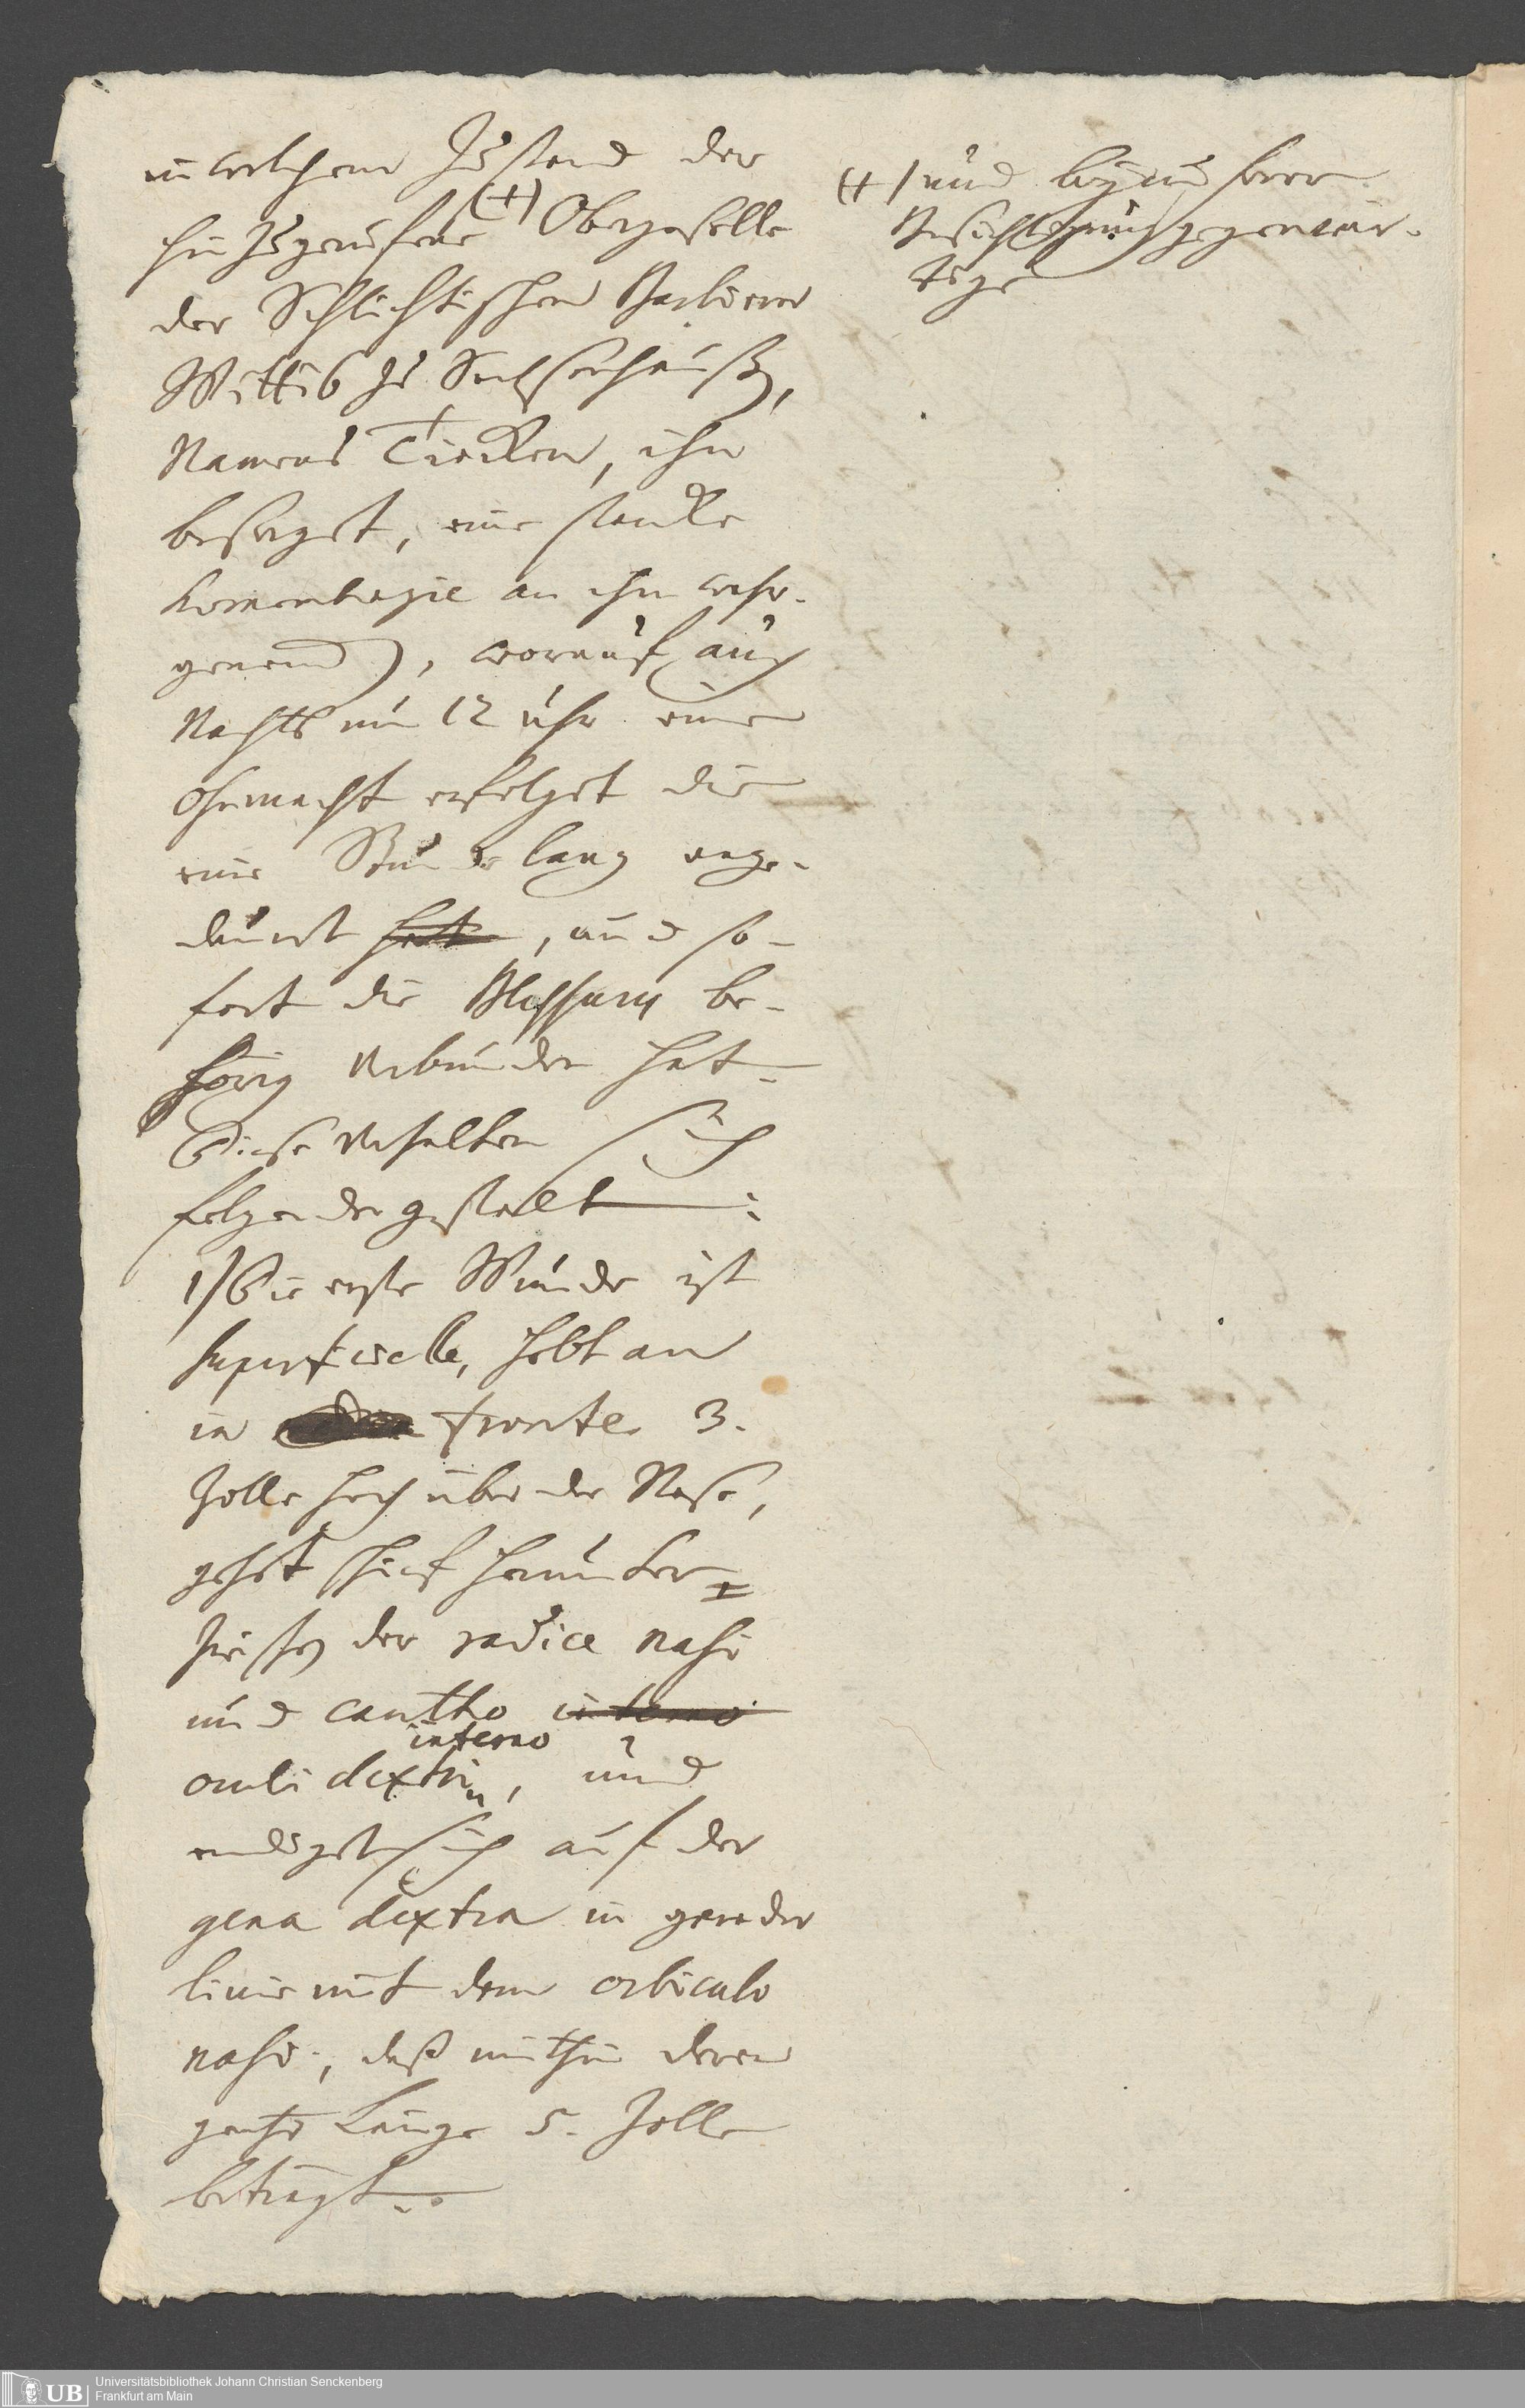 in welchem Zustand der
hinzugerufene (+) Obergeselle
der Schlichtischen Barbierer
Wittib zu Sachsenhaußen,
Namens Ciecken, ihn
besorget, eine starcke
haemorhagie an ihm wahr-
genomen), worauf auch
Nachts um 12 uhr eine
Ohnmacht erfolget die
eine Stunde lang ange-
dauert hat, und so-
fort die Blessuren be-
hörig verbunden hat.
Diese verhalten sich
folgender gestallt:
1) Die erste Wunde ist
superficielle, hebt an
in fronte 3.
Zolle hoch über der Nase,
gehet schief herunter
zwischen der radice nasi
und cantho interno
interno
oculi dextri, und
endiget sich auf der
gena dextra in gerader
linie mit dem orbiculo
nasi, daß mithin deren
gantze Länge 5. Zolle
beträgt.
(+) und bey unserer
Besichtigung gegenwär-
tige
Universitätsbibliothek Johann Christian Senckenberg
Frankfurt am Main
UB